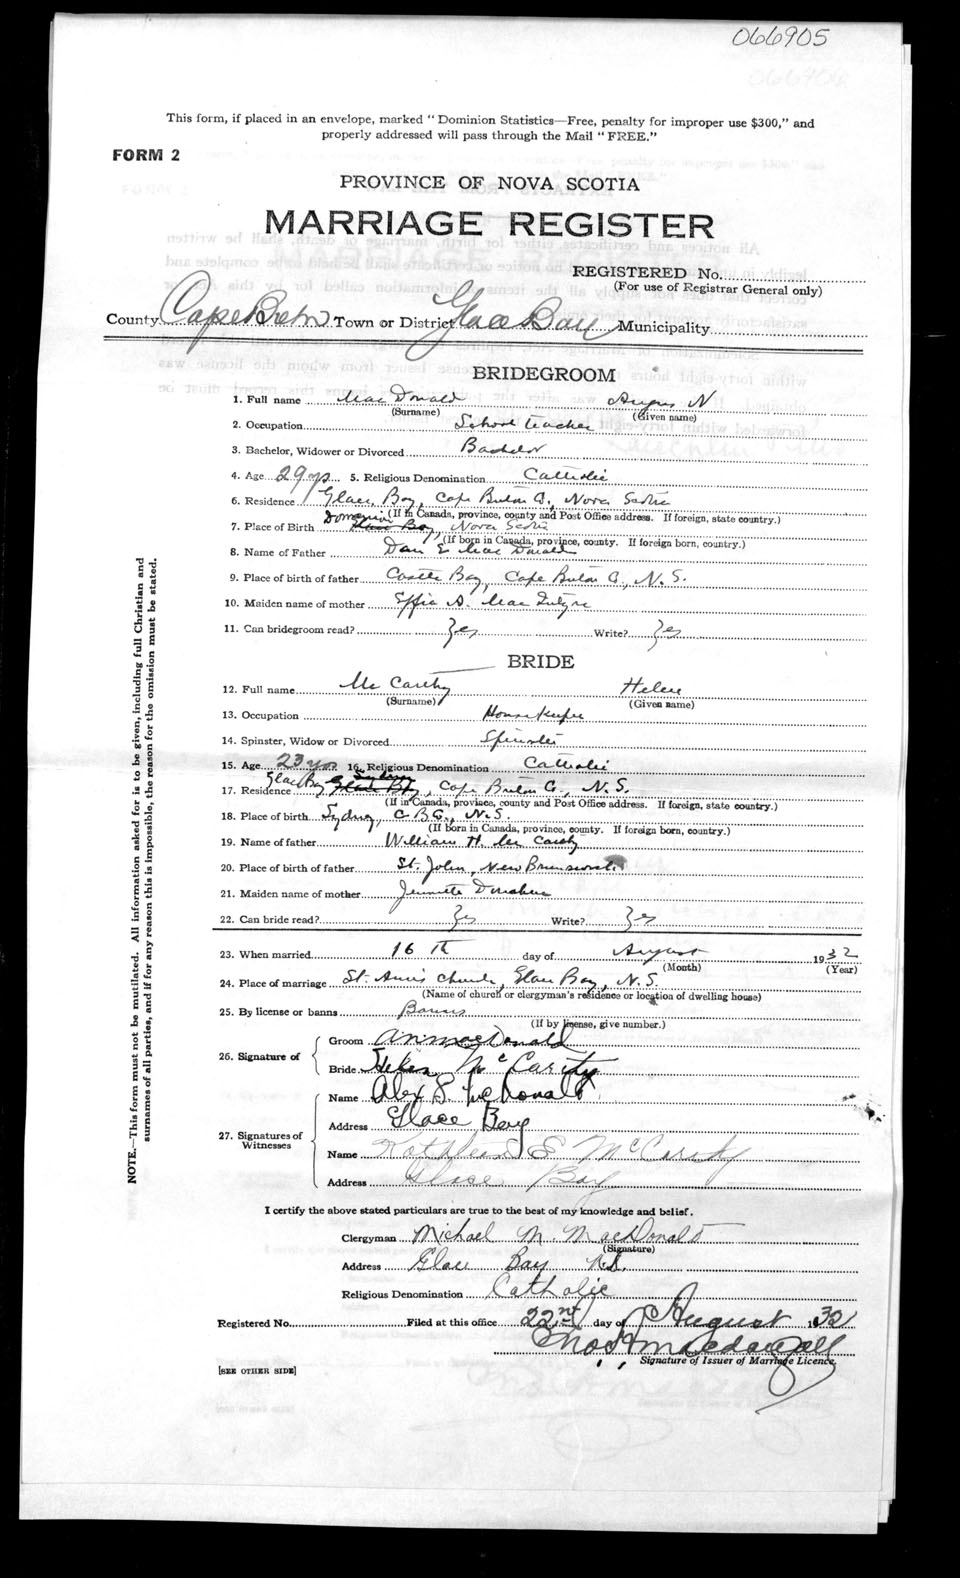 066905
This form, if placed in an envelope, marked "Dominion Statistics—Free, penalty for improper use $300," and
properly addressed will pass through the Mail "FREE."
FORM 2
PROVINCE OF NOVA SCOTIA
MARRIAGE REGISTER
REGISTERED No.
(For use of Registrar General only)
County Cape Breton Town or District Glace Bay Municipality
BRIDEGROOM
1. Full name MacDonald Angus N
(Surname) (Given name)
2. Occupation School teacher
3. Bachelor, Widower or Divorced Bachelor
4. Age 29 yrs 5. Religious Denomination Catholic
6. Residence Glace Bay, Cape Breton Co, Nova Scotia
(If in Canada, province, county and Post Office address. If foreign, state country.)
7. Place of Birth Dominion Glace Bay, Nova Scotia
(If born in Canada, province, county. If foreign born, country.)
8. Name of Father Dan E MacDonald
9. Place of birth of father Castle Bay, Cape Breton Co., N.S.
10. Maiden name of mother Effie A. MacIntyre
11. Can bridegroom read? Yes Write? Yes
BRIDE
12. Full name McCarthy Helen
(Surname) (Given name)
13. Occupation Housekeeper
14. Spinster, Widow or Divorced Spinster
15. Age 23 yrs 16. Religious Denomination Catholic
17. Residence Glace Bay Cape Breton Co., N.S.
(If in Canada, province, county and Post Office address. If foreign, state country.)
18. Place of birth Sydney, C.B.Co., N.S.
(If born in Canada, province, county. If foreign born, country.)
19. Name of father William H. McCarthy
20. Place of birth of father St. John, New Brunswick
21. Maiden name of mother Jennette Donahue
22. Can bride read? Yes Write? Yes
23. When married 16th day of August 1932
(Month) (Year)
24. Place of marriage St. Ann's Church, Glace Bay, N.S.
(Name of church or clergyman's residence or location of dwelling house)
25. By license or banns Banns
(If by license, give number.)
26. Signature of
Groom A N MacDonald
Bride Helen McCarthy
27. Signatures of Witnesses
Name Alex S. McDonald
Address Glace Bay
Name Kathleen E McCarthy
Address Glace Bay
I certify the above stated particulars are true to the best of my knowledge and belief.
Clergyman Michael M. MacDonald
(Signature)
Address Glace Bay N.S.
Religious Denomination Catholic
Registered No. Filed at this office 22nd day of August 1932
Signature of Issuer of Marriage Licence.
[SEE OTHER SIDE]
NOTE.—This form must not be mutilated. All information asked for is to be given, including full Christian and
surnames of all parties, and if for any reason this is impossible, the reason for the omission must be stated.